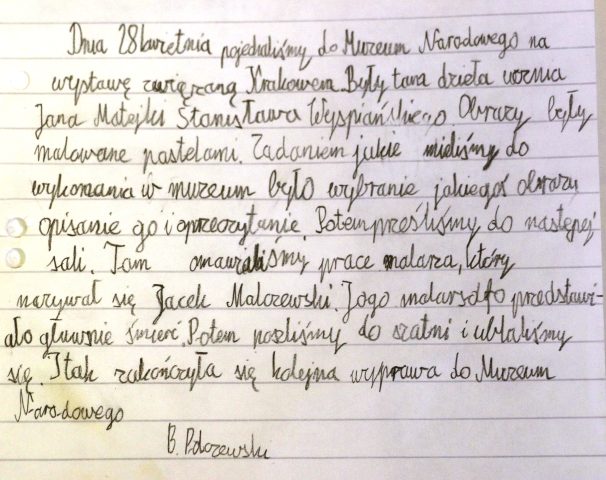 Dnia 28 kwietnia pojechaliśmy do Muzeum Narodowego na
wystawę związaną Krakowem. Były tam dzieła ucznia
Jana Matejki Stanisława Wyspiańskiego. Obrazy były
malowane pastelami. Zadaniem jakie mieliśmy do
wykonania w muzeum było wybranie jakiegoś obrazu
opisanie go i oprzeczytanie. Potem prześliśmy do następej
sali. Tam omawialiśmy prace malarza, który
nazywał się Jacek Malczewski. Jogo malarsdło przedstawi-
ało głuwnie śmierć. Potem poszliśmy do szatni i ubraliśmy
się. I tak zakończyła się kolejna wyprawa do Muzeum
Narodowego
B.